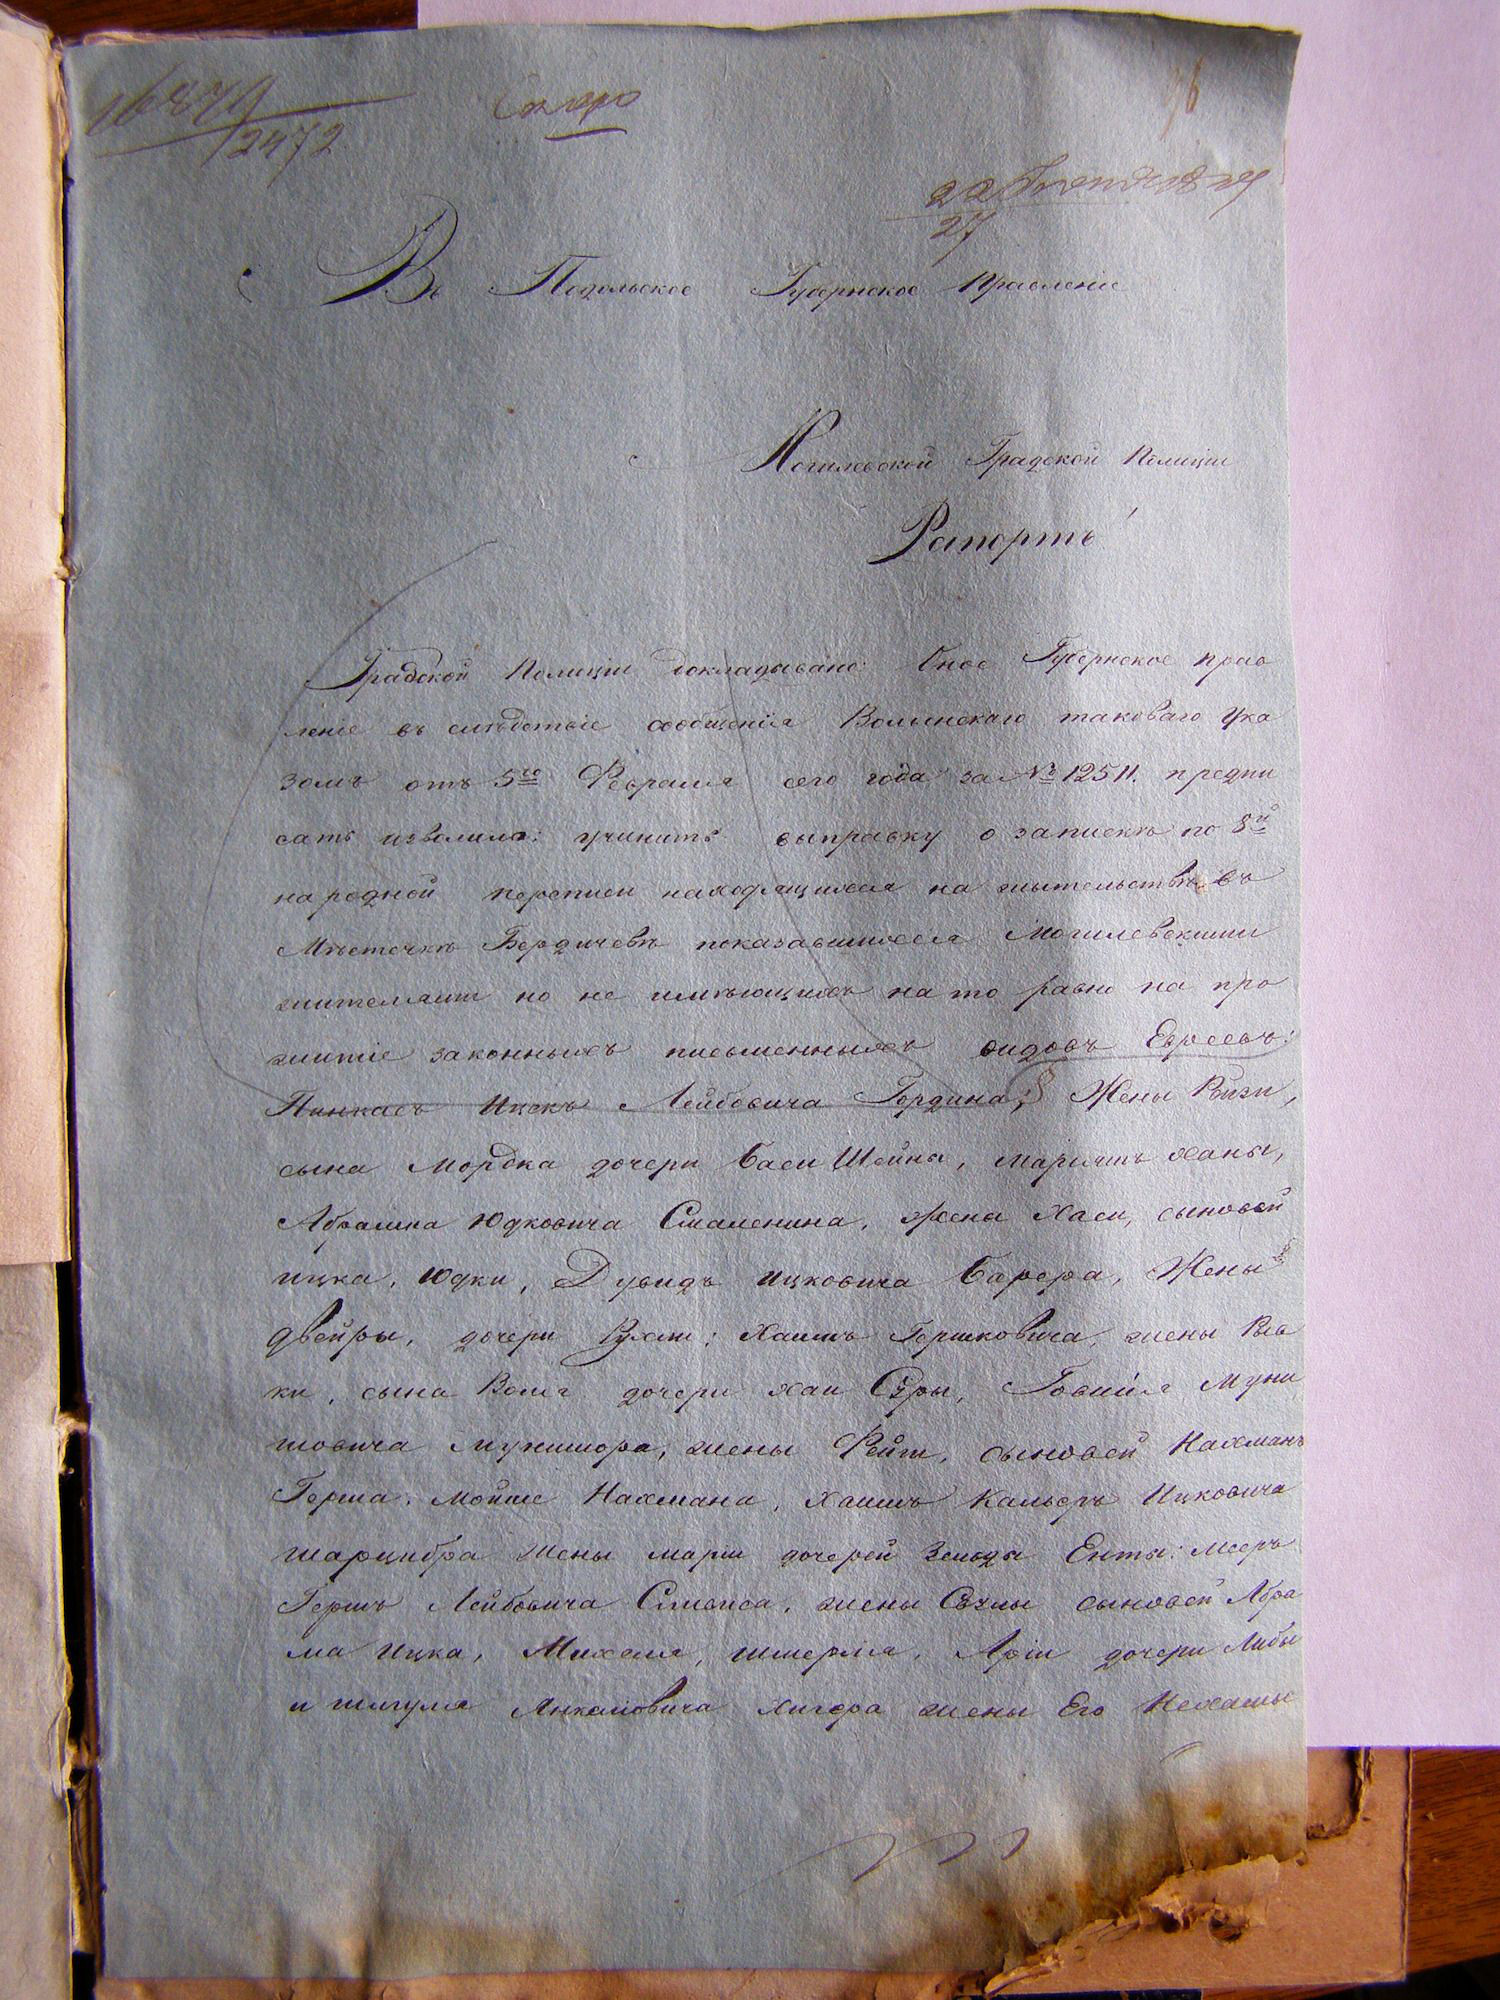 16879
2472
Скоро
22 27
Въ Подольское Губернское Правленіе
Могилевской Градской Полиціи
Рапортъ
Градской Полиціи докладывано: Оное Губернское прав
леніе въ следствіе сообщенія Волынскаго таковаго Ука
зомъ отъ 5го Февраля сего года за № 12511. предпи
сать изволило: учинить выправку о записке по 8й
народной переписи находящихся на жытельстве въ
Местечкѣ Бердичевѣ показавшихся Могилевскими
жителями но не имѣющихъ на то равно на про
житіе законныхъ письменныхъ видовъ Евреевъ:
Пинкасъ Ицекъ Лейбовича Гордина; Жены Рейзи,
сына Мордка дочери Баси Шейны, Маріимъ Ханы,
Абрамка Юдковича Смаленина, жены Хаси, сыновей
Ицка, Юдки, Дувидъ Ицковича Барера, Жены
Двейры, дочери Рухли; Хаимъ Гершковича, жены Рив
ки, сына Воля дочери Хаи Суры, Говшія Муни
шовича Мунишора, жены Фейги, сыновей Нахманъ
Герша, Мойше Нахмана, Хаимъ Кальеръ Ицковича
жены Маріи дочерей Зельды Енты: Мееръ
Гершъ Лейбовича жены сыновей Абра
ма Ицка, Михеля, Шмерля, Аріи дочери Либы
и Шмуля Янкаловича Хигера жены Его Нехамы